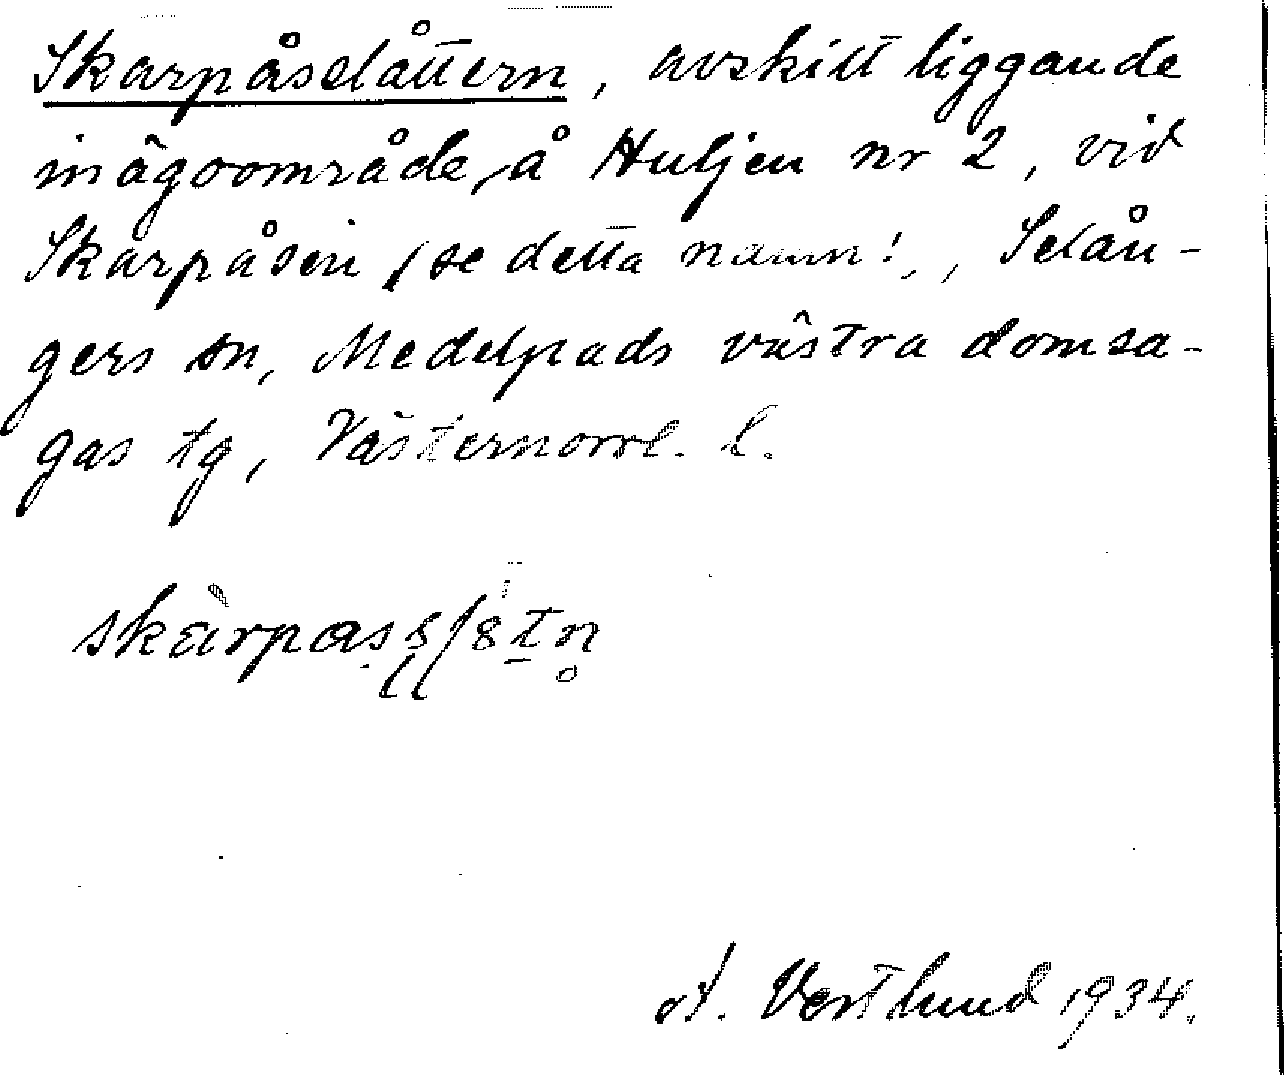 Skarpåslåttern, avskilt liggande
inägoområde å Huljen nr 2, vid
Skarpåsen (se detta namn!), Selån-
gers sn, Medelpads västra domsa-
gas tg, Västernorrl. l.
A. Vestlund 1934.